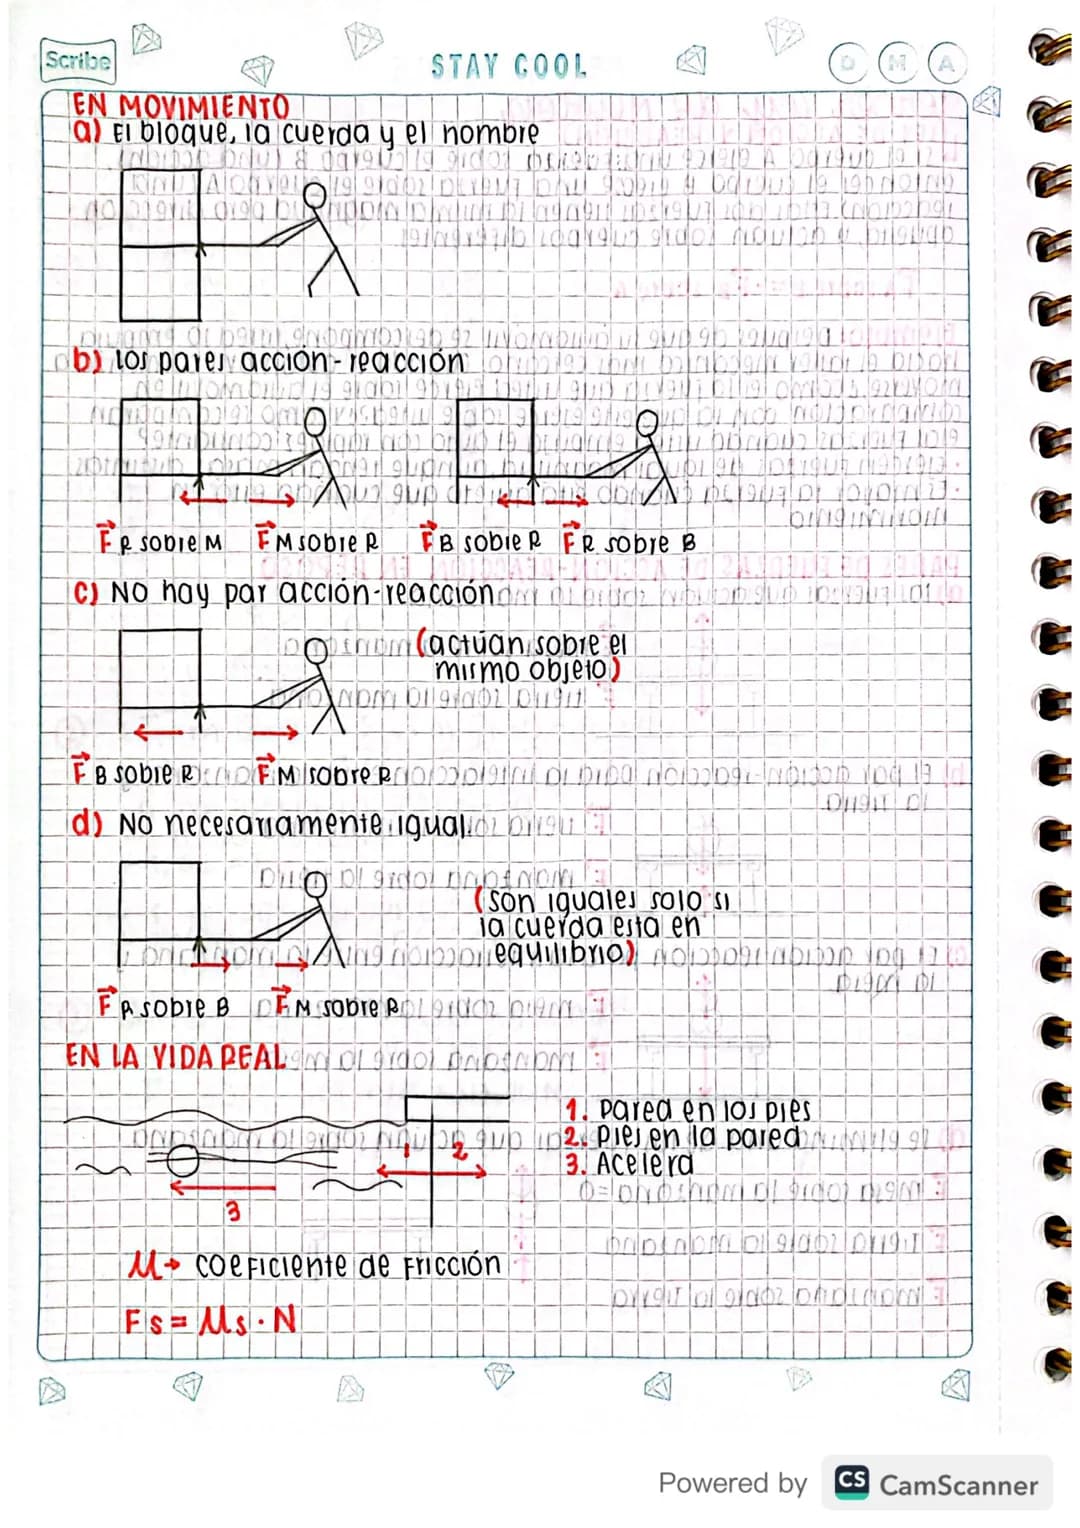 Scribe
STAY COOL
D M A
EN MOVIMIENTO
a) El bloque, la cuerda y el hombre
b) Los pares acción-reacción
F R sobre M F M sobre R F B sobre R F R sobre B
c) NO hay par acción-reacción
(actúan sobre el
mismo objeto)
F B sobre R F M sobre R
d) No necesariamente igual
(son iguales solo si
la cuerda esta en
equilibrio)
F R sobre B F M sobre R
EN LA VIDA REAL
1. Pared en los pies
2. Pies en la pared
3. Acelera
1 2
3
μ → coeficiente de fricción
Fs = μs · N
Powered by CS CamScanner